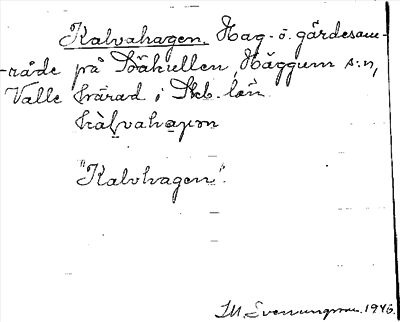 Kalvahagen. Hag- o. gärdesom-
-råde på Bäkullen, Häggum s:n,
Valle härad i Skb. län.
kàlvahaɡɐn
"Kalvhagen".
I. M. Svenungsson. 1946.